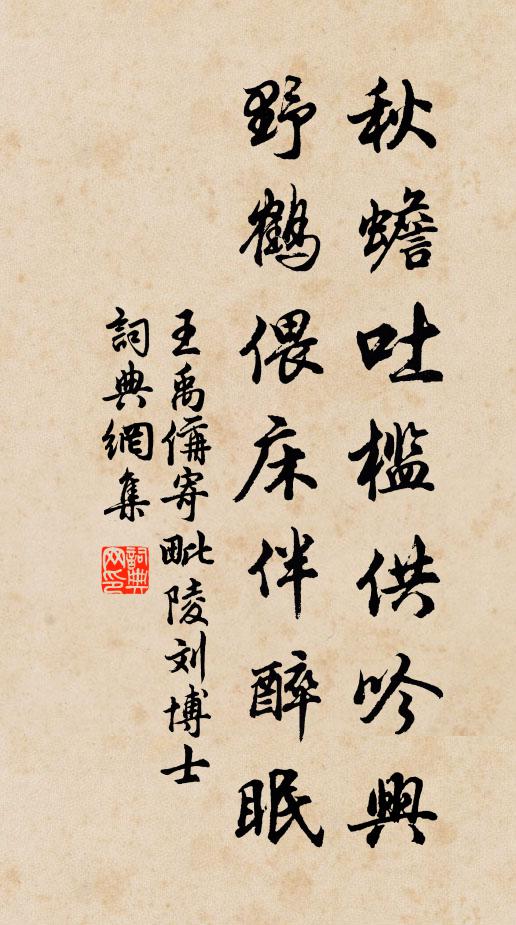 秋蟾吐檻供吟興
野鶴偎床伴醉眠
王禹偁寄毗陵刘博士
詞典網集
詞典网印